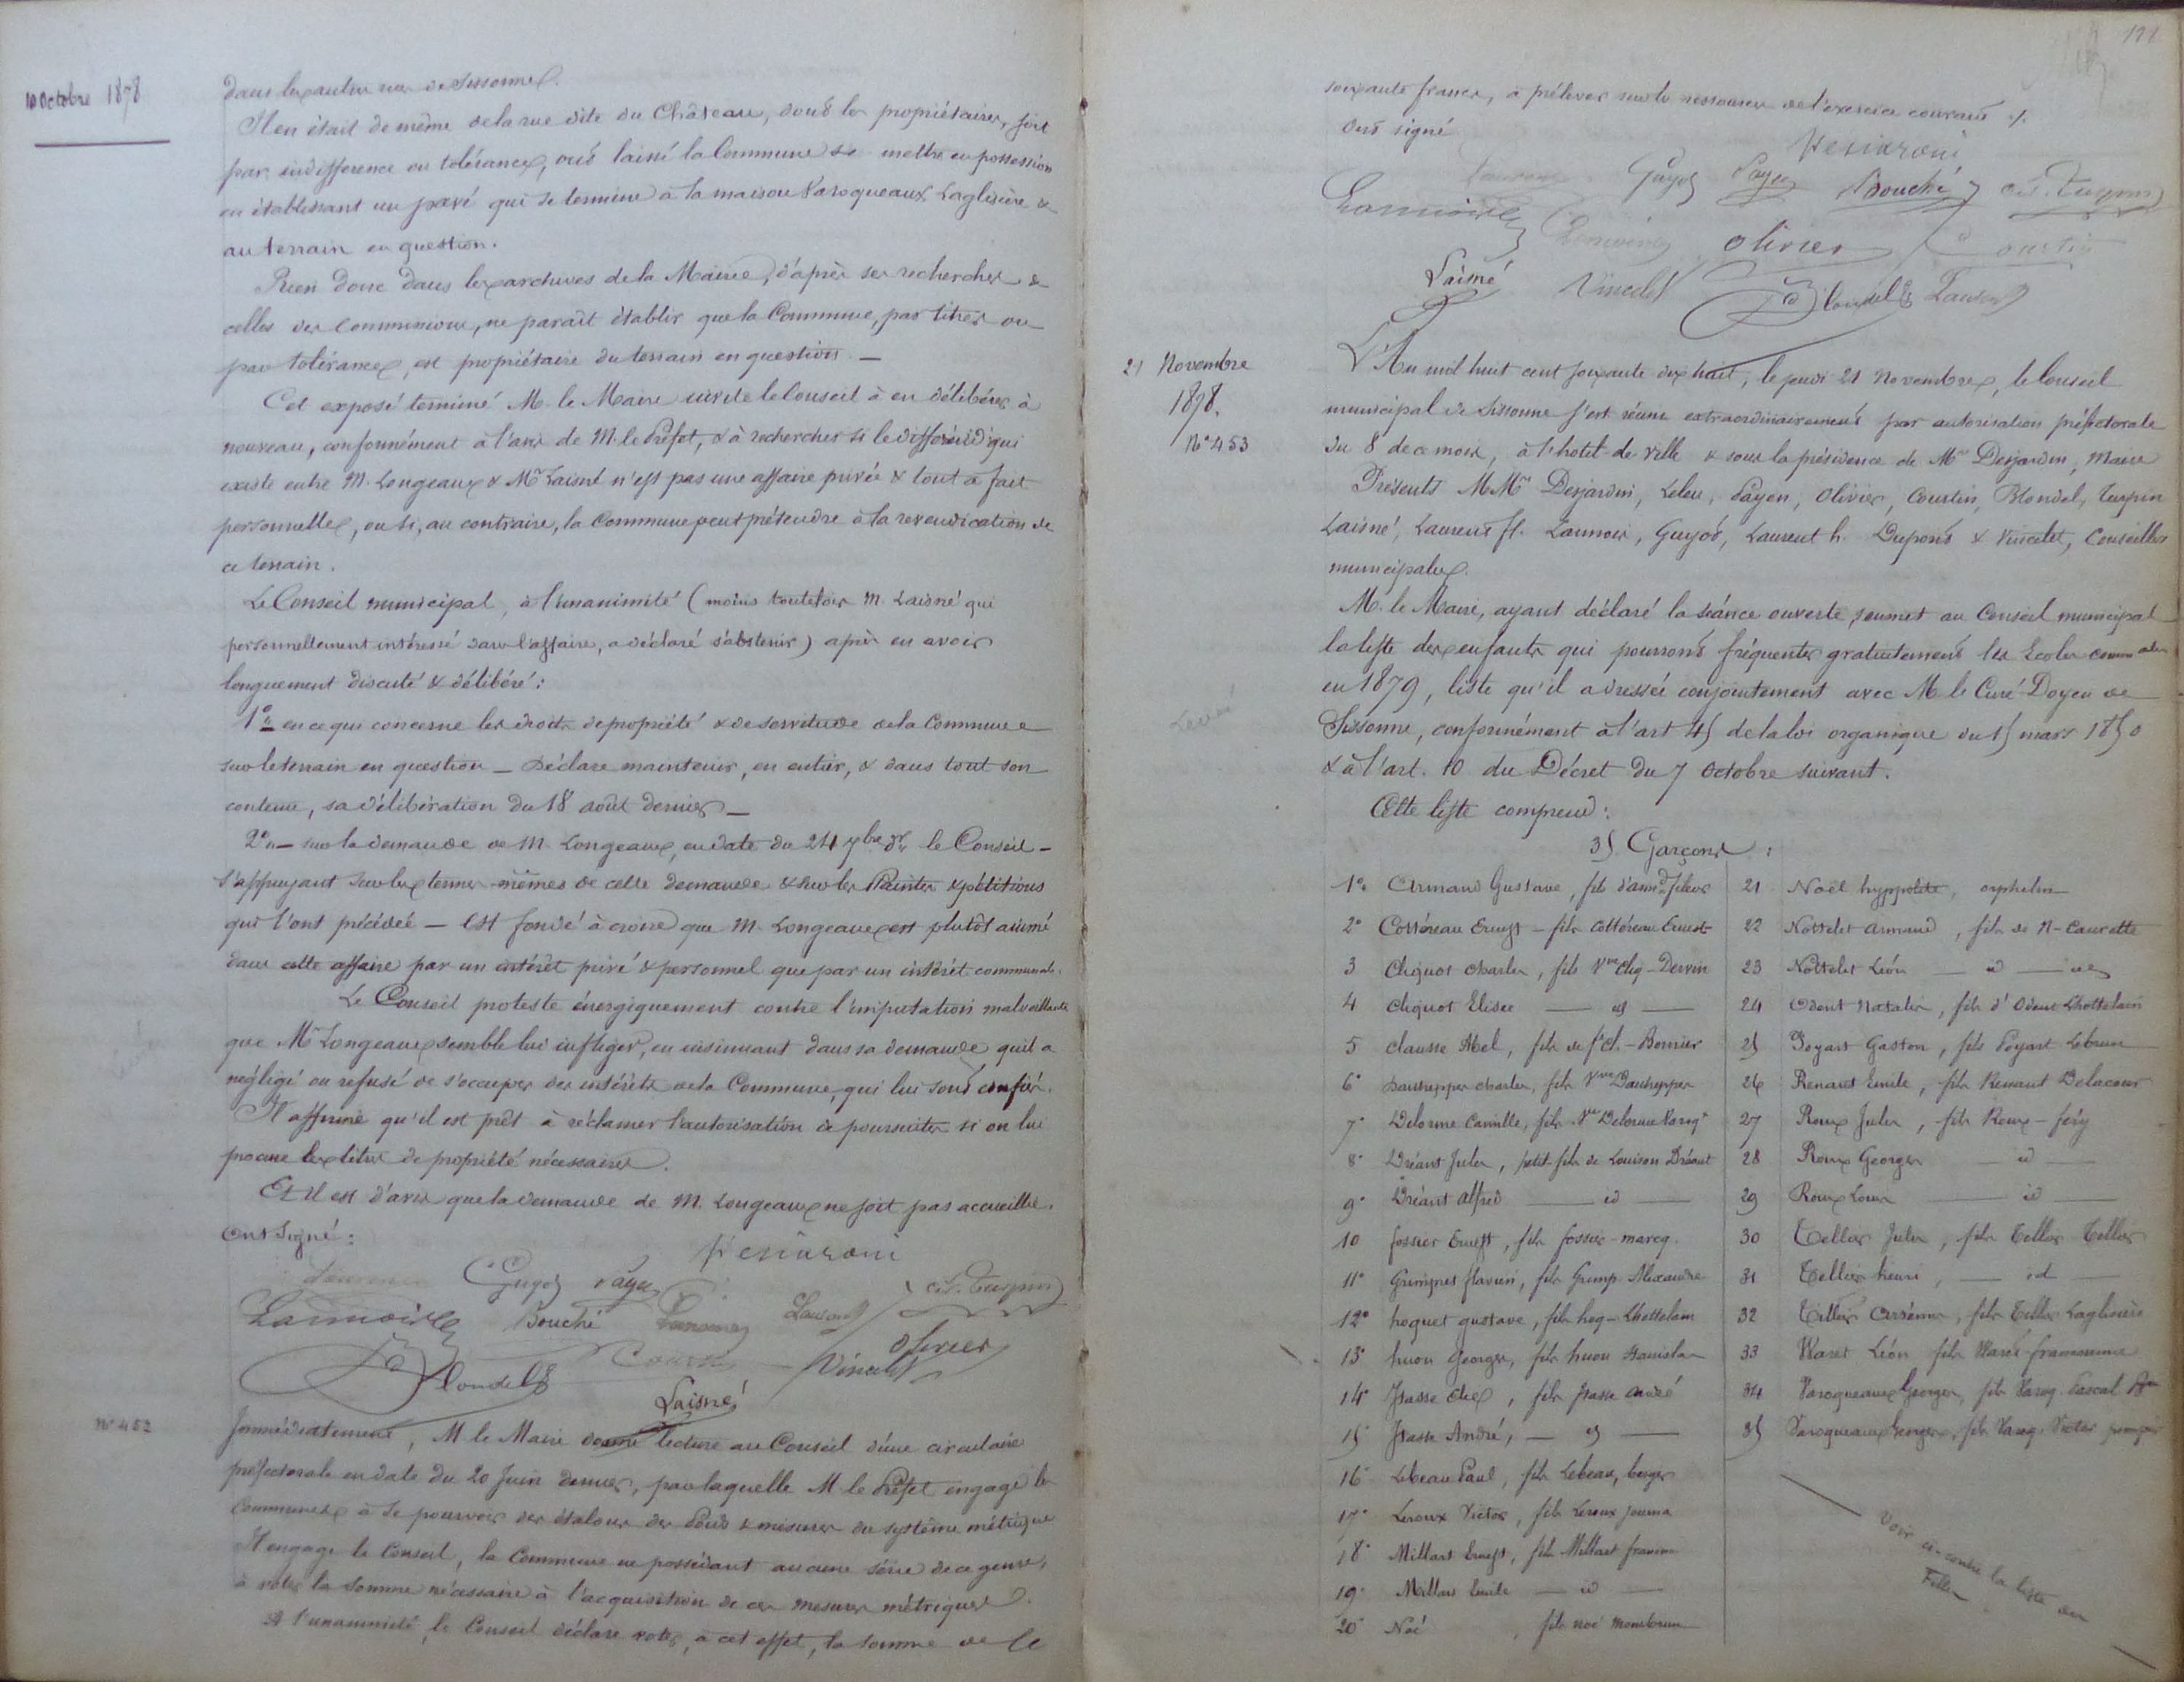 10 Octobre 1878
dans les autres rues de Sissonne.
Il en était de même de la rue dite du Château, dont les propriétaires, soit
par indifférence ou tolérance, ont laissé la Commune se mettre en possession
en établissant un pavé qui se termine à la maison Varoqueaux Laglisière &
au terrain en question.
Rien donc dans les archives de la Mairie, d'après ses recherches &
celles des Commissions, ne parait établir que la Commune, par titres ou
par tolérance, est propriétaire du terrain en question. —
Cet exposé terminé M. le Maire invite le Conseil à en délibérer à
nouveau, conformément à l'avis de M. le Préfet, & à rechercher si le différend qui
existe entre M. Longeaux & Mr Laisné n'est pas une affaire privée & tout à fait
personnelle, ou si, au contraire, la Commune peut prétendre à la revendication de
ce terrain.
Le Conseil municipal, à l'unanimité (moins toutefois M. Laisné qui
personnellement intéressé dans l'affaire, a déclaré s'abstenir) après en avoir
longuement discuté & délibéré :
1° en ce qui concerne les droits de propriété & de servitude de la Commune
sur le terrain en question — Déclare maintenir, en entier, & dans tout son
contenu, sa délibération du 18 août dernier —
2° — sur la demande de M. Longeaux, en date du 24 7bre dr le Conseil —
s'appuyant sur les termes mêmes de cette demande & sur les Plaintes & pétitions
qui l'ont précédée — est fondé à croire que M. Longeaux est plutôt animé
dans cette affaire par un intérêt privé & personnel que par un intérêt communal.
Le Conseil proteste énergiquement contre l'imputation malveillante
que Mr Longeaux semble lui infliger, en insinuant dans sa demande qu'il a
négligé ou refusé de s'occuper des intérêts de la Commune, qui lui sont confiés.
Il affirme qu'il est prêt à réclamer l'autorisation de poursuites si on lui
procure les titres de propriété nécessaires.
Et il est d'avis que la demande de M. Longeaux ne soit pas accueillie.
Ont signé :
Guyot Payen
Lannoire Bouché Laurent Ct. Turpin
Olivier
Blondel Vincelet
Laisné
N° 452
Immédiatement, M. le Maire donne lecture au Conseil d'une circulaire
préfectorale en date du 20 Juin dernier, par laquelle M. le Préfet engage les
Communes à se pourvoir des étalons des Poids & mesures du système métrique
Il engage le Conseil, la Commune ne possédant aucune série de ce genre,
à voter la somme nécessaire à l'acquisition de ces mesures métriques.
A l'unanimité, le Conseil déclare voter, à cet effet, la somme de
soixante francs, à prélever sur les ressources de l'exercice courant ./.
Ont signé
Guyot Payen Bouché Ct. Turpin
Lannoire Olivier
Laisné Vincelet Blondel Laurent
21 Novembre
1878.
N° 453
L'An mil huit cent soixante dix huit, le jeudi 21 Novembre, le Conseil
municipal de Sissonne s'est réuni extraordinairement par autorisation préfectorale
du 8 de ce mois, à l'hotel de ville & sous la présidence de Mr Desjardin, Maire
Présents MMrs Desjardin, Leleu, Payen, Olivier, Courtin, Blondel, Turpin
Laisné, Laurent fl. Lannois, Guyot, Laurent h. Dupont & Vincelet, Conseillers
municipaux.
M. le Maire, ayant déclaré la séance ouverte, soumet au Conseil municipal
la liste des enfants qui pourront fréquenter gratuitement les Ecoles communales
en 1879, liste qu'il a dressée conjointement avec M. le Curé-Doyen de
Sissonne, conformément à l'art 45 de la loi organique du 15 mars 1850
& à l'art. 10 du Décret du 7 Octobre suivant.
Cette liste comprend :
35 Garçons :
1° Armand Gustave, fils d'armd fileur
2° Cottéreau Ernest — fils Cottéreau Ernest
3 Cliquot Charles, fils Vve Cliq-Dervin
4 Cliquot Elisée — id —
5 Clausse Abel, fils de
6° Charles, fils Vve
7° Delorme Camille, fils Vve Delorme Varoq
8° Dréant Jules, petit-fils de Louison Dréant
9° Dréant Alfred — id —
10 Fossier Ernest, fils fossier-marcq.
11° fils Grimp. Alexandre
12° hoguet gustave, fils hog-Lhottelain
13° huon Georges, fils huon Stanislas
14° fils André
15 André, — id —
16° Lebeau Paul, fils Lebeau, berger
17° Leroux Victor, fils Leroux
18° Millart Ernest, fils Millart
19° Millart Emile — id —
20° Noé , fils noé
21 Noël hyppolite, orphelin
22 Nottelet Armand, fils de N-Caurette
23 Nottelet Léon — id —
24 Odent Natalis, fils d'Odent Lhottelain
25 Poyart Gaston, fils Poyart Lebrun
26 Renaut Emile, fils Renaut Delacour
27 Roux Jules, fils Roux-féry
28 Roux Georges — id —
29 Roux Louis — id —
30 Tellier Jules, fils Tellier Tellier
31 Tellier henri, — id —
32 Tellier Arsène, fils Tellier Laglisière
33 Waret Léon fils Waret
34 Varoqueaux Georges, fils Varoq. Pascal
35 Varoqueaux Georges, fils Varoq. Victor pompier
Voir ci-contre la liste des
Filles